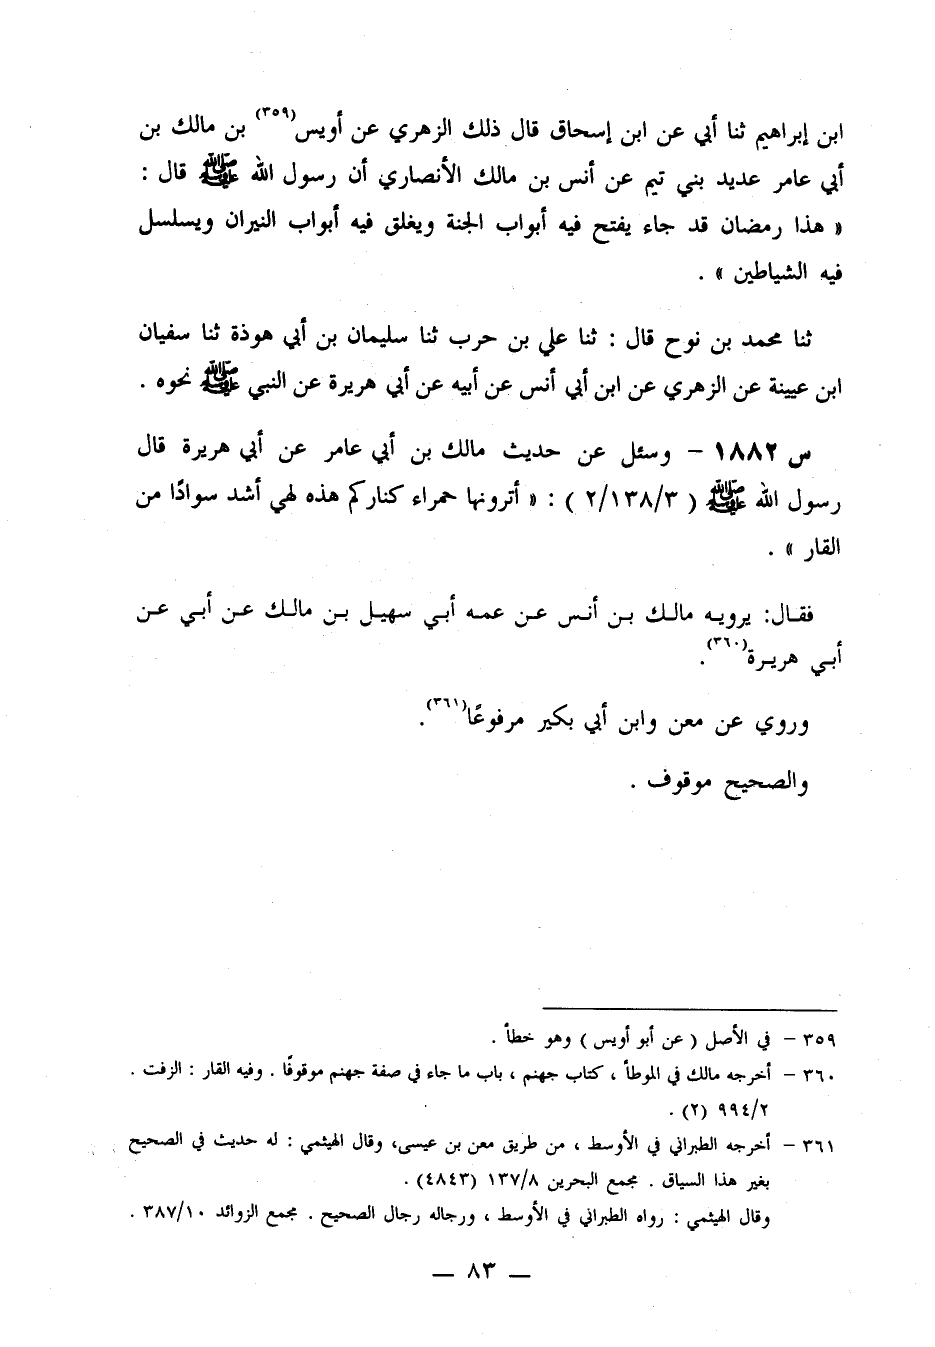 ابن إبراهيم ثنا أبي عن ابن إسحاق قال ذلك الزهري عن أويس(٣٥٩) بن مالك بن
أبي عامر عديد بني تيم عن أنس بن مالك الأنصاري أن رسول الله ﷺ قال :
« هذا رمضان قد جاء يفتح فيه أبواب الجنة ويغلق فيه أبواب النيران ويسلسل
فيه الشياطين » .
ثنا محمد بن نوح قال : ثنا علي بن حرب ثنا سليمان بن أبي هوذة ثنا سفيان
ابن عيينة عن الزهري عن ابن أبي أنس عن أبيه عن أبي هريرة عن النبي ﷺ نحوه .
س ١٨٨٢ – وسئل عن حديث مالك بن أبي عامر عن أبي هريرة قال
رسول الله ﷺ ( ٢/١٣٨/٣ ) : « أترونها حمراء كناركم هذه لهي أشد سوادًا من
القار » .
فقال: يرويه مالك بن أنس عن عمه أبي سهيل بن مالك عن أبي عن
أبي هريرة(٣٦٠).
وروي عن معن وابن أبي بكير مرفوعًا(٣٦١).
والصحيح موقوف .
٣٥٩ – في الأصل ( عن أبو أويس ) وهو خطأ .
٣٦٠ – أخرجه مالك في الموطأ ، كتاب جهنم ، باب ما جاء في صفة جهنم موقوفًا . وفيه القار : الزفت .
٩٩٤/٢ (٢) .
٣٦١ – أخرجه الطبراني في الأوسط ، من طريق معن بن عيسى، وقال الهيثمي : له حديث في الصحيح
بغير هذا السياق . مجمع البحرين ١٣٧/٨ (٤٨٤٣) .
وقال الهيثمي : رواه الطبراني في الأوسط ، ورجاله رجال الصحيح . مجمع الزوائد ٣٨٧/١٠ .
— ٨٣ —